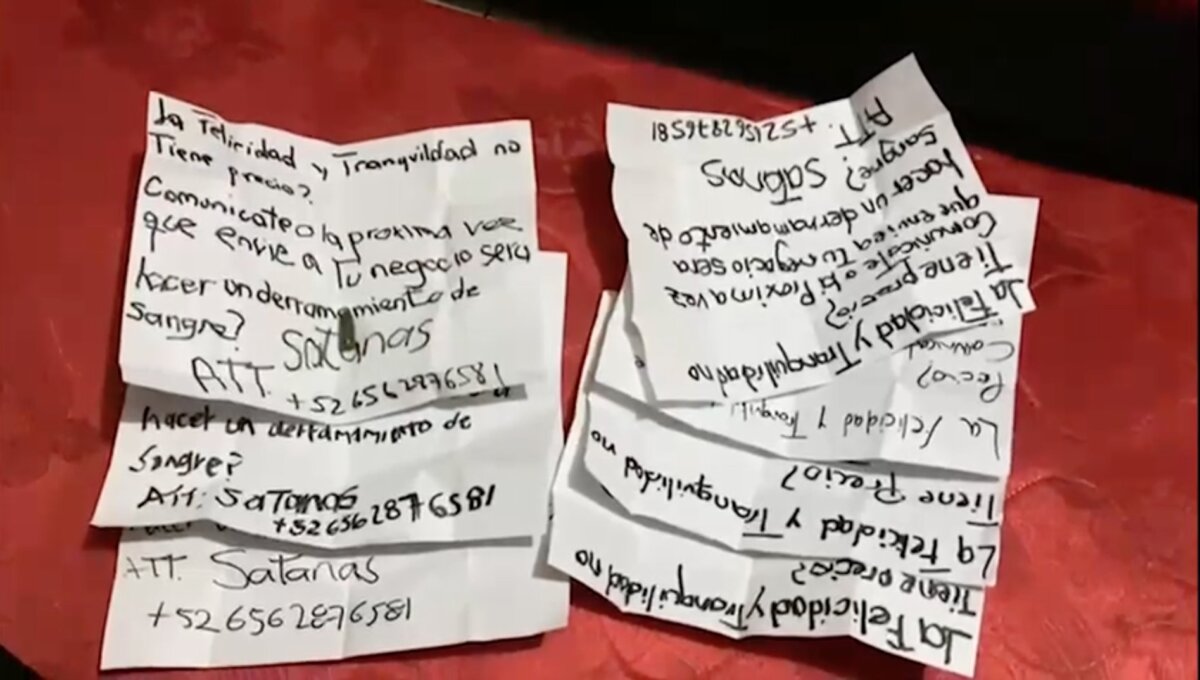 La Felicidad y Tranquildad no
Tiene precio?
Comunicate o la proxima vez
que envie a Tu negocio sera
hacer un derramamiento de
Sangre?
ATT. Satanas
+526562876581
hacer un derramamiento de
Sangre?
ATT: Satanas
+526562876581
ATT. Satanas
+526562876581
La Felicidad y Tranquilidad no
Tiene precio?
Comunicate o la Proxima vez
que envie a tu negocio sera
hacer un derramamiento de
sangre? Satanas
ATT. +521562876581
La felicidad y Tranquili
Precio?
Comunicat
La felicidad y Tranquilidad no
Tiene Precio?
La Felicidad y Tranquilidad no
Tiene precio?